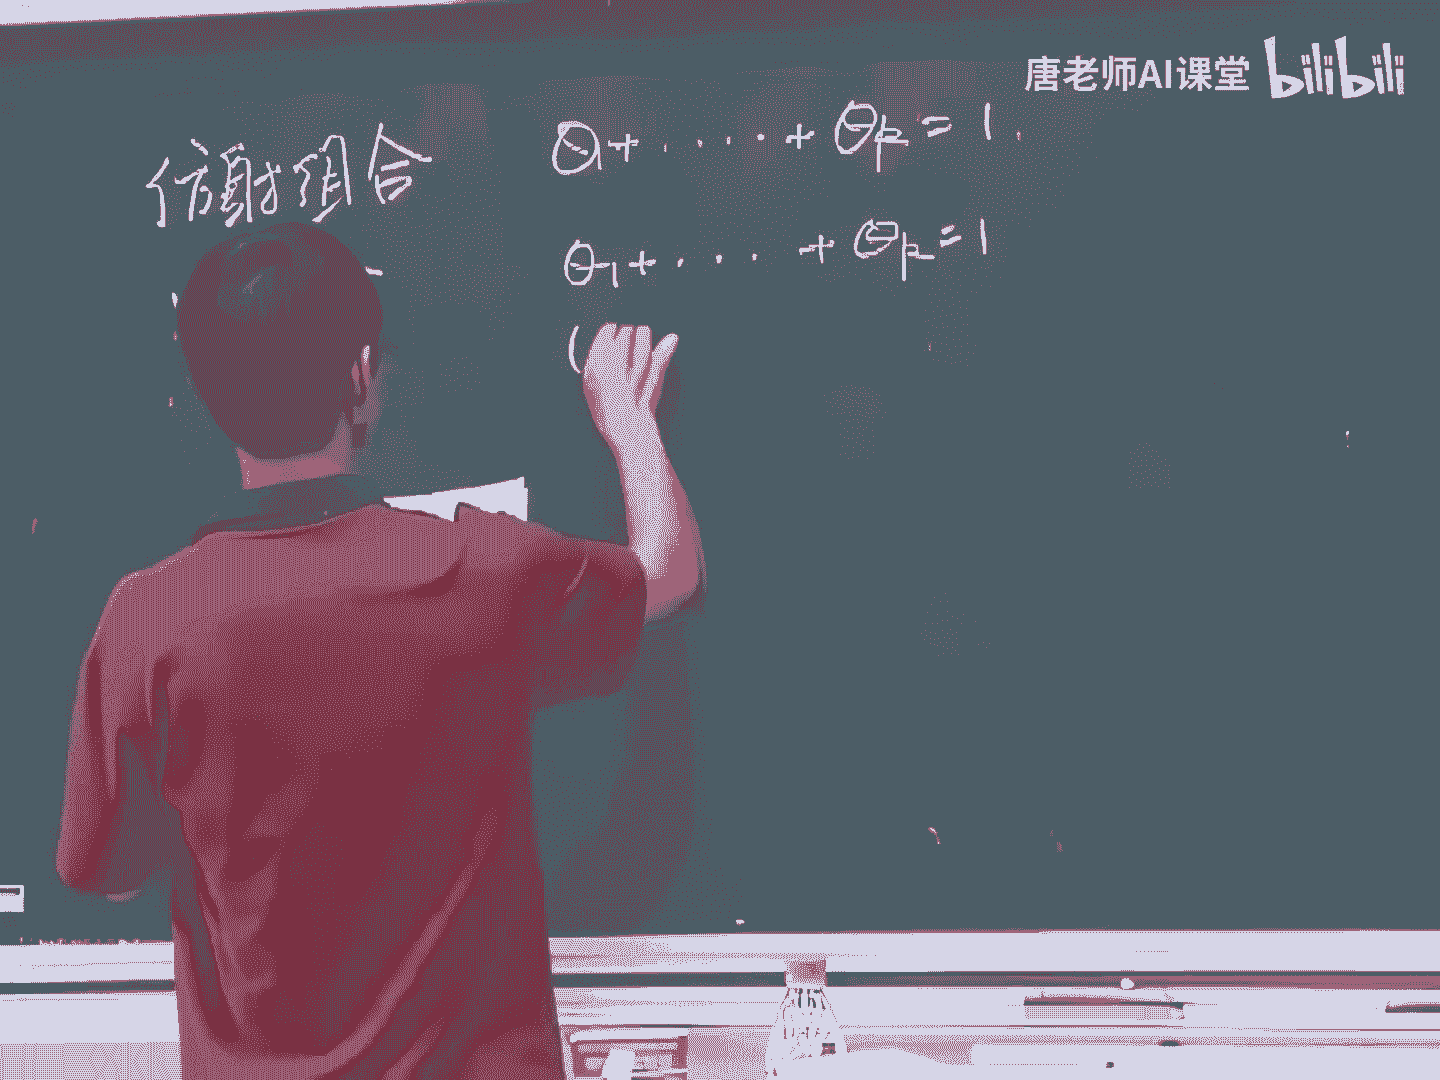 唐老师AI课堂 bilibili
仿射组合 θ₁+....+θₖ=1.
θ₁+...+θₖ=1
(